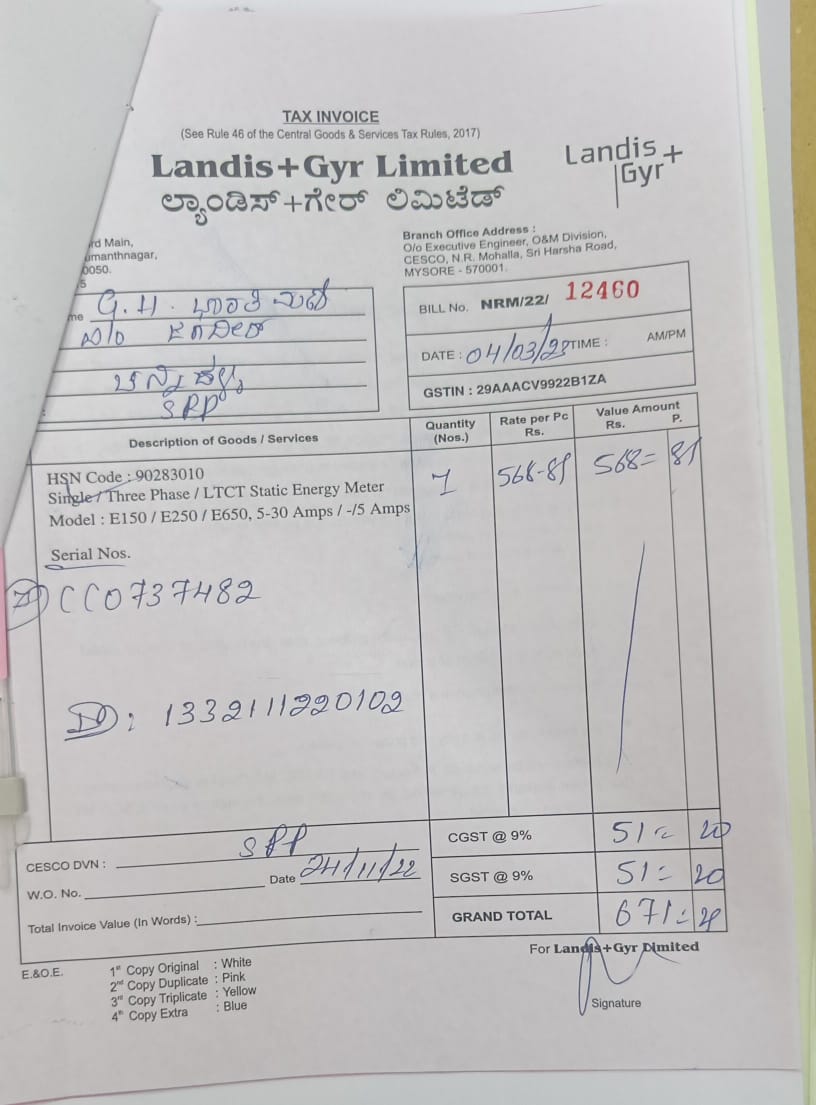 TAX INVOICE
(See Rule 46 of the Central Goods & Services Tax Rules, 2017)
Landis+Gyr Limited
Landis+
Gyr
ಲ್ಯಾಂಡಿಸ್+ಗೇರ್ ಲಿಮಿಟೆಡ್
rd Main,
umanthnagar,
0050.
5
Branch Office Address :
O/o Executive Engineer, O&M Division,
CESCO, N.R. Mohalla, Sri Harsha Road,
MYSORE - 570001.
me G.H.
SRP
BILL No. NRM/22/ 12460
DATE : 04/03/23 TIME : AM/PM
GSTIN : 29AAACV9922B1ZA
Description of Goods / Services
Quantity
(Nos.)
Rate per Pc
Rs.
Value Amount
Rs. P.
HSN Code : 90283010
Single / Three Phase / LTCT Static Energy Meter
Model : E150 / E250 / E650, 5-30 Amps / -/5 Amps
1 568-81 568= 81
Serial Nos.
CC0737482
ID: 1332111220102
CESCO DVN : SPP
W.O. No. Date 24/11/22
Total Invoice Value (In Words) :
CGST @ 9% 51= 20
SGST @ 9% 51= 20
GRAND TOTAL 671=
For Landis+Gyr Limited
Signature
E.&O.E.
1st Copy Original : White
2nd Copy Duplicate : Pink
3rd Copy Triplicate : Yellow
4th Copy Extra : Blue